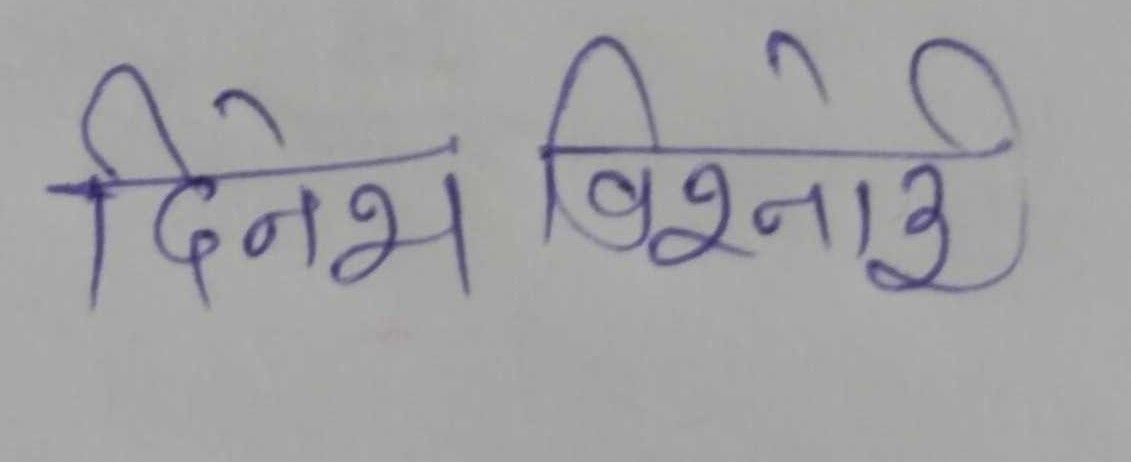 दिनेश बिश्नोई